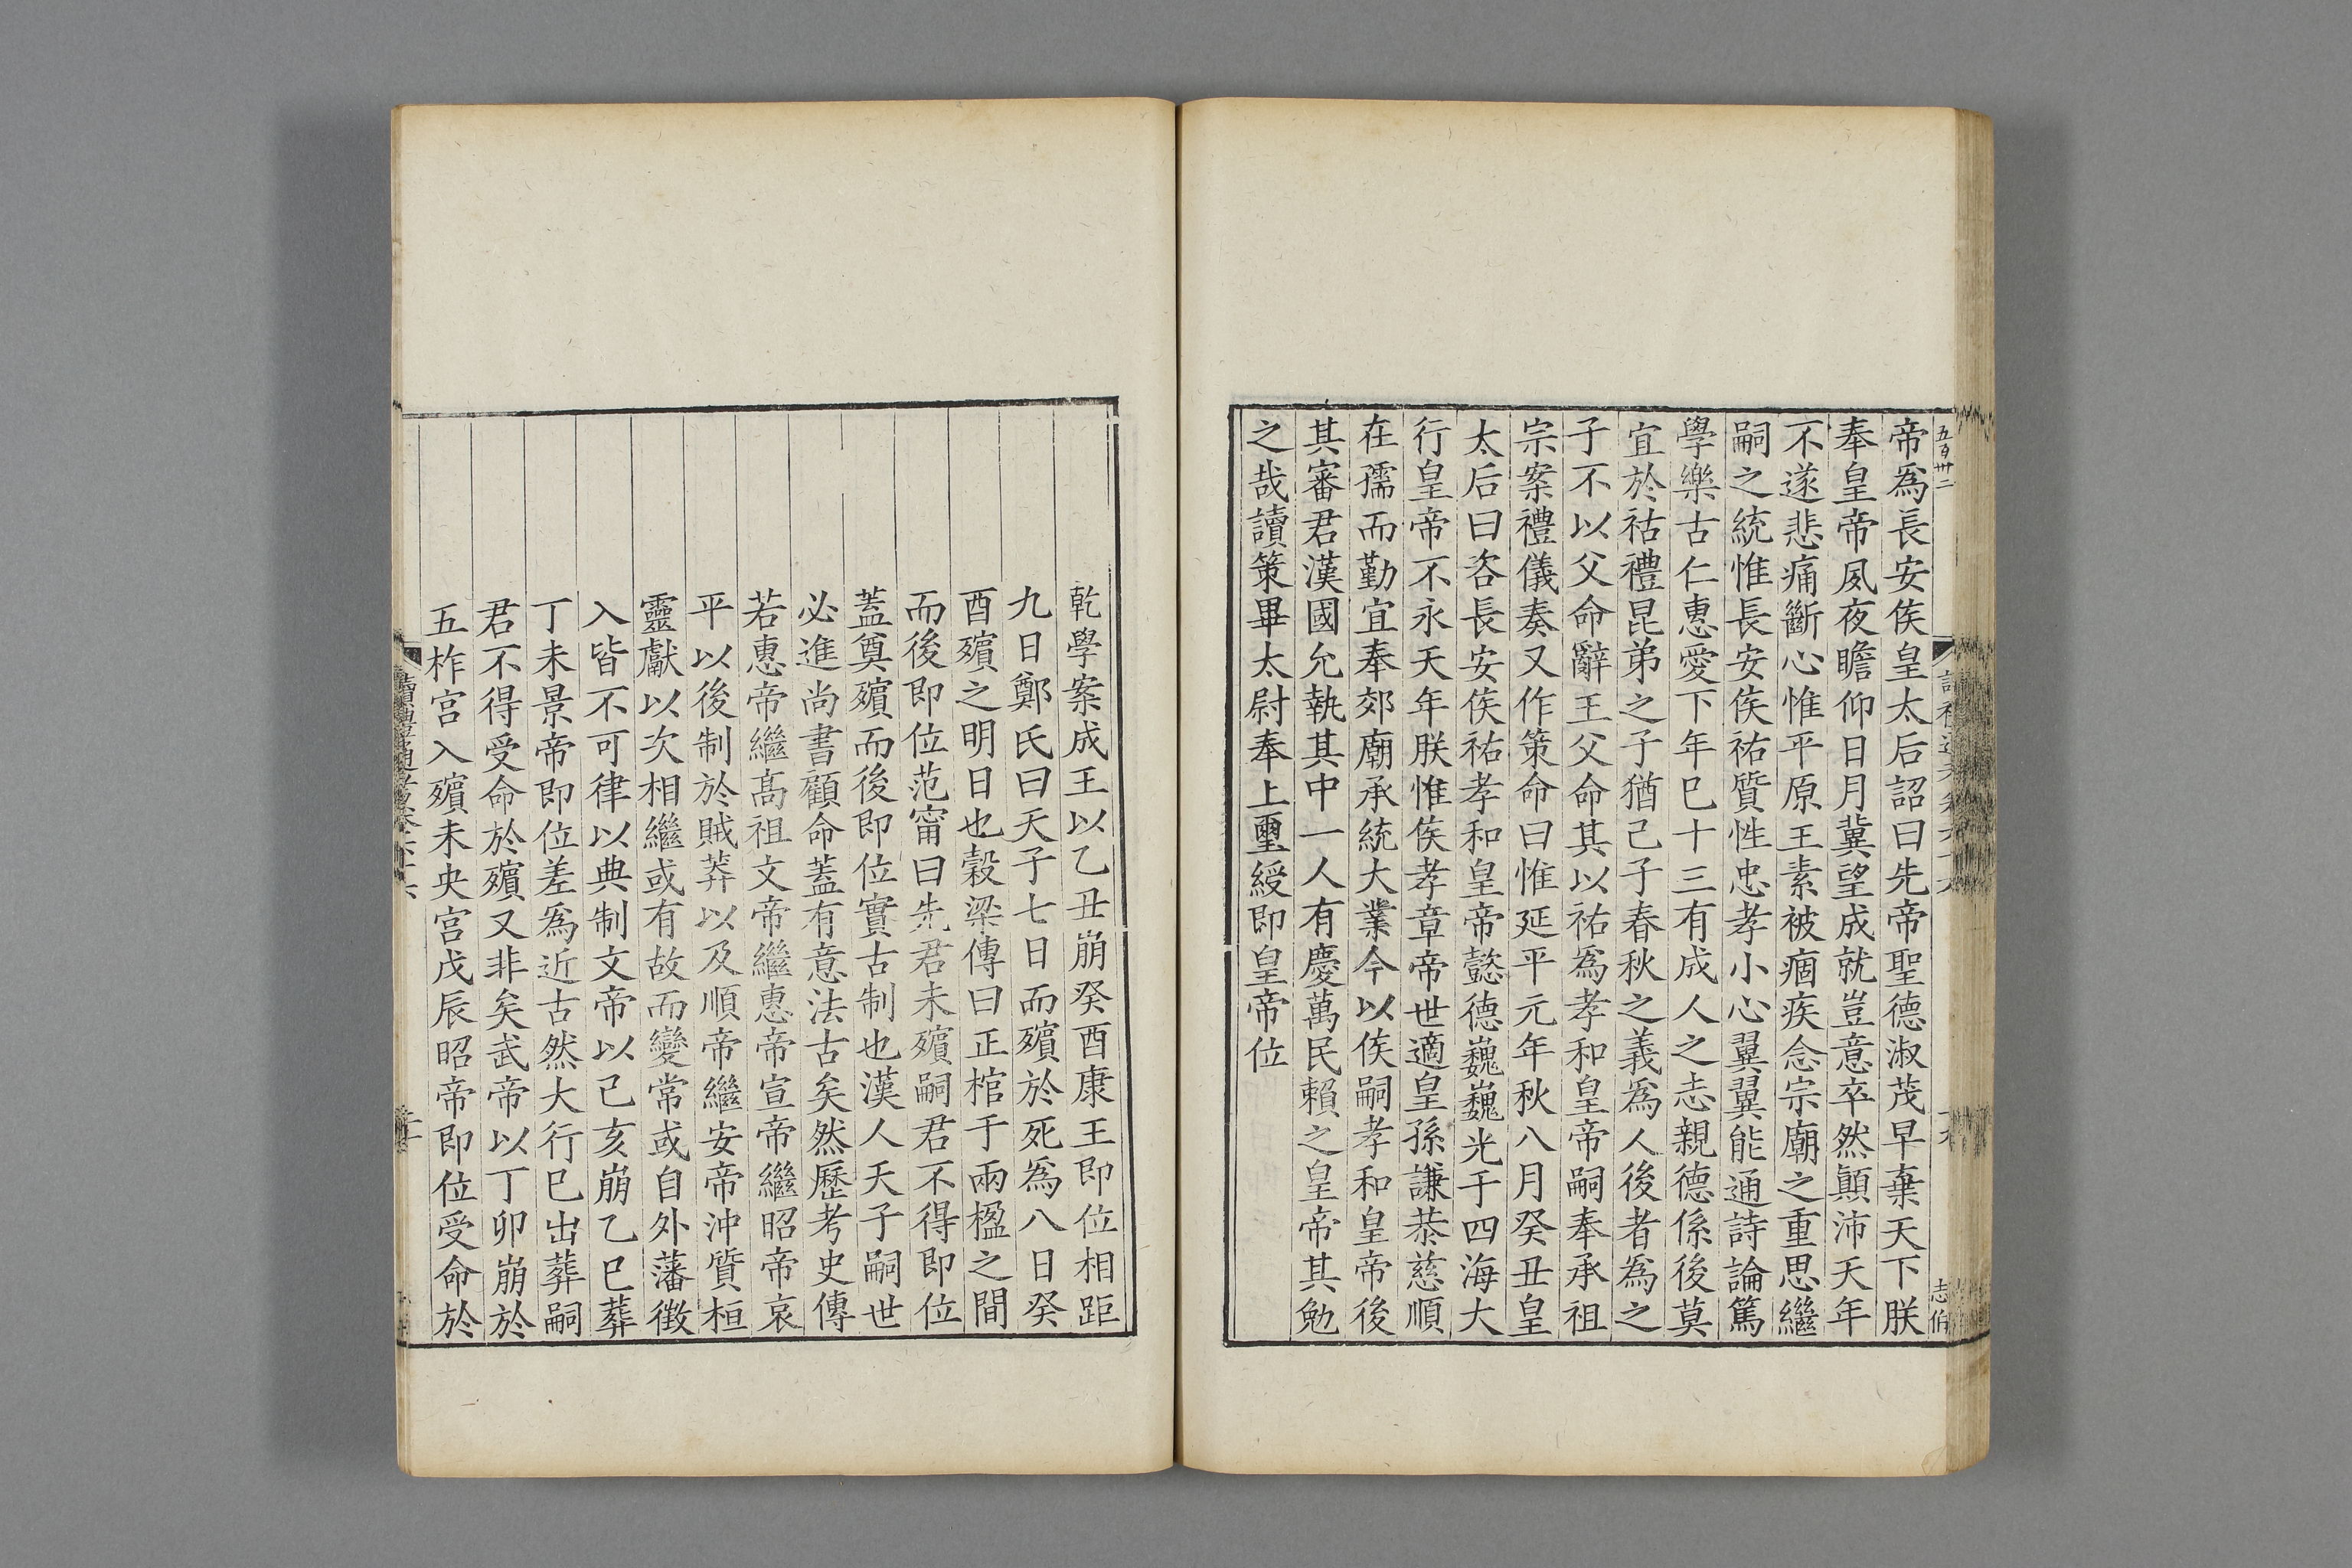 五百卅二
志伯
帝爲長安侯皇太后詔曰先帝聖德淑茂早棄天下朕
奉皇帝夙夜瞻仰日月冀望成就豈意卒然顛沛天年
不遂悲痛斷心惟平原王素被痼疾念宗廟之重思繼
嗣之統惟長安侯祐質性忠孝小心翼翼能通詩論篤
學樂古仁惠愛下年巳十三有成人之志親德係後莫
宜於祜禮昆弟之子猶己子春秋之義爲人後者爲之
子不以父命辭王父命其以祐爲孝和皇帝嗣奉承祖
宗案禮儀奏又作策命曰惟延平元年秋八月癸丑皇
太后曰咨長安侯祐孝和皇帝懿德巍巍光于四海大
行皇帝不永天年朕惟侯孝章帝世適皇孫謙恭慈順
在孺而勤宜奉郊廟承統大業今以侯嗣孝和皇帝後
其審君漢國允執其中一人有慶萬民賴之皇帝其勉
之哉讀策畢太尉奉上璽綬即皇帝位
乾學案成王以乙丑崩癸酉康王即位相距
九日鄭氏曰天子七日而殯於死爲八日癸
酉殯之明日也穀梁傳曰正棺于兩楹之間
而後即位范甯曰先君未殯嗣君不得即位
蓋奠殯而後即位實古制也漢人天子嗣世
必進尚書顧命蓋有意法古矣然歷考史傳
若惠帝繼高祖文帝繼惠帝宣帝繼昭帝哀
平以後制於賊莽以及順帝繼安帝沖質桓
靈獻以次相繼或有故而變常或自外藩徵
入皆不可律以典制文帝以己亥崩乙巳葬
丁未景帝即位差爲近古然大行巳出葬嗣
君不得受命於殯又非矣武帝以丁卯崩於
五柞宮入殯未央宮戊辰昭帝即位受命於
讀禮通考卷六十六
二十